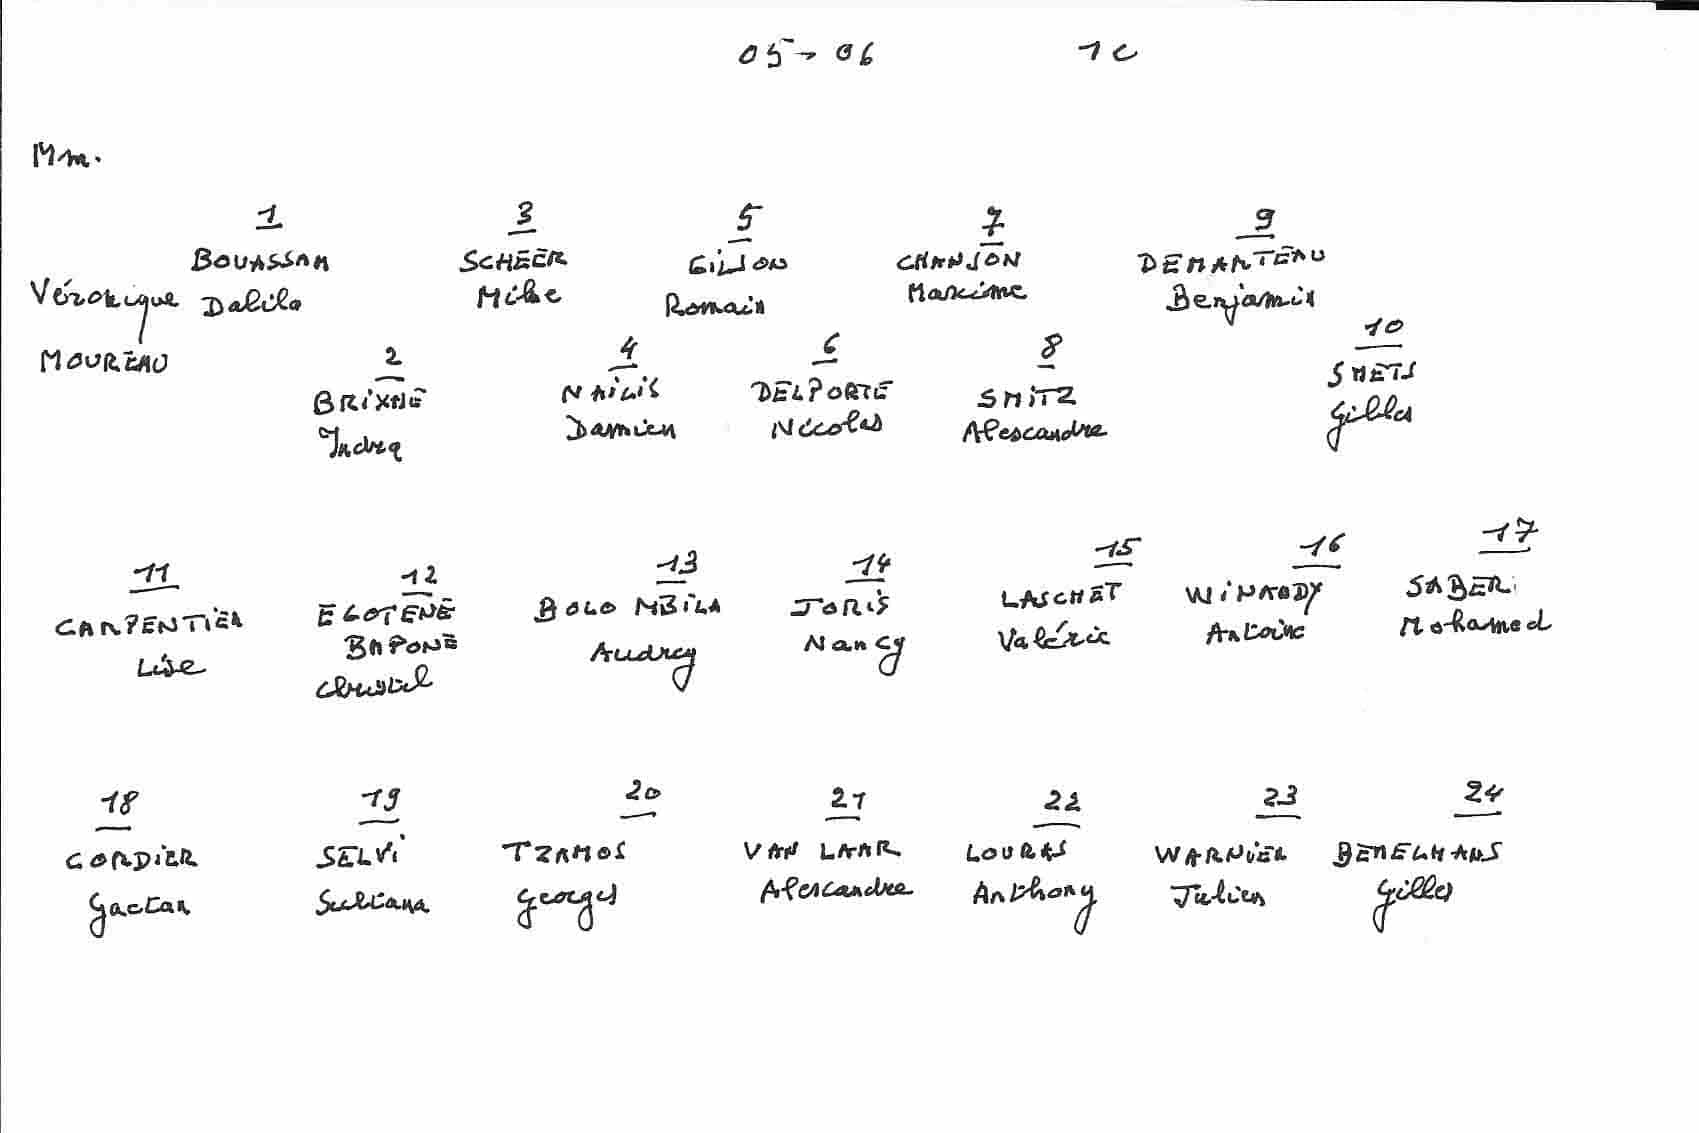 05→06 1C
Mm.
1 3 5 7 9
BOUASSAM SCHEER GILSON CHANSON DEMARTEAU
Véronique Dalila Mike Romain Maxime Benjamin
MOUREAU
2 4 6 8 10
BRIXHE NAILIS DELPORTE SMITZ SMETS
Damien Nicolas Alexandre Gilles
11 12 13 14 15 16 17
CARPENTIER EGOTENE BOLO MBILA JORIS LASCHET WINANDY SABERI
BAPONE
Lise Christel Audrey Nancy Valérie Antoine Mohamed
18 19 20 21 22 23 24
CORDIER SELVI TZAMOS VAN LAAR LOURAS WARNIER BENELMANS
Gaetan Sultana Georges Alexandre Anthony Julien Gilles